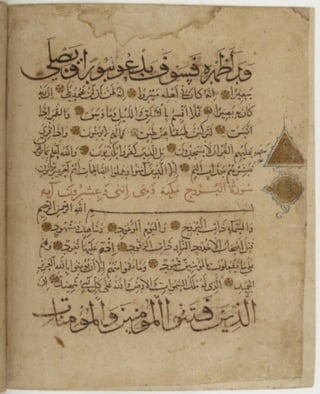 وراء ظهره فسوف يدعو ثبورا ويصلى
سعيرا انه كان في اهله مسرورا انه ظن ان لن يحور بلى ان ربه
كان به بصيرا فلا اقسم بالشفق والليل وما وسق والقمر اذا
اتسق لتركبن طبقا عن طبق فما لهم لا يؤمنون واذا قرئ
عليهم القران لا يسجدون بل الذين كفروا يكذبون والله اعلم بما يوعون
فبشرهم بعذاب اليم الا الذين امنوا وعملوا الصالحات لهم اجر غير ممنون
سورة البروج مكية وهي اثنتي وعشرون آية
بسم الله الرحمن الرحيم
والسماء ذات البروج واليوم الموعود وشاهد ومشهود
قتل اصحاب الاخدود النار ذات الوقود اذ هم عليها قعود وهم
على ما يفعلون بالمؤمنين شهود وما نقموا منهم الا ان يؤمنوا بالله العزيز
الحميد الذي له ملك السموات والارض والله على كل شيء شهيد ان
الذين فتنوا المؤمنين والمؤمنات